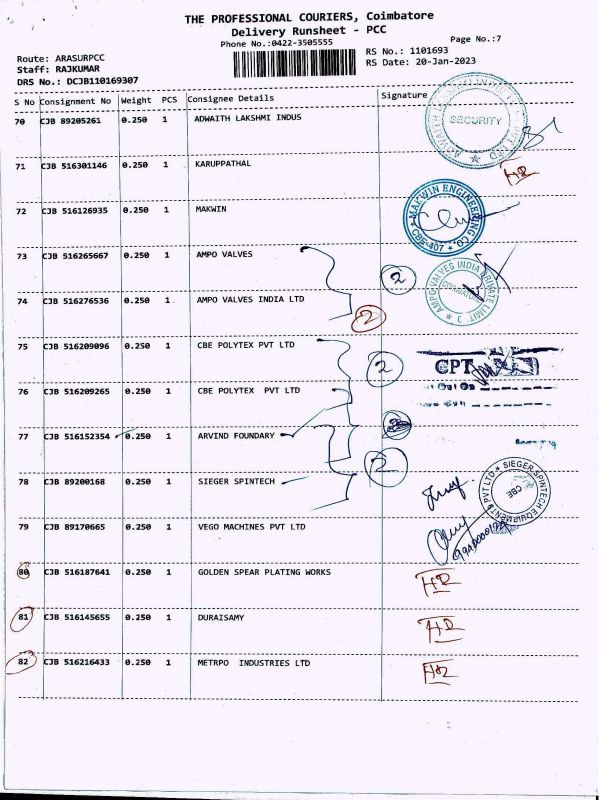 THE PROFESSIONAL COURIERS, Coimbatore
Delivery Runsheet - PCC
Phone No.:0422-3505555
Page No.:7
Route: ARASURPCC
RS No.: 1101693
Staff: RAJKUMAR
RS Date: 20-Jan-2023
DRS No.: DCJB110169307
S No Consignment No Weight PCS Consignee Details Signature
70 CJB 89205261 0.250 1 ADWAITH LAKSHMI INDUS
SECURITY
71 CJB 516301146 0.250 1 KARUPPATHAL
HR
72 CJB 516126935 0.250 1 MAKWIN
MAKWIN ENGINEERING CO.
CBE-407
73 CJB 516265667 0.250 1 AMPO VALVES
2
AMPO VALVES INDIA PRIVATE LIMITED
74 CJB 516276536 0.250 1 AMPO VALVES INDIA LTD
2
75 CJB 516209096 0.250 1 CBE POLYTEX PVT LTD
2
CPT
76 CJB 516209265 0.250 1 CBE POLYTEX PVT LTD
77 CJB 516152354 0.250 1 ARVIND FOUNDARY
2
78 CJB 89200168 0.250 1 SIEGER SPINTECH
SIEGER SPINTECH EQUIPMENTS PVT LTD
CBE
79 CJB 89170665 0.250 1 VEGO MACHINES PVT LTD
80 CJB 516187641 0.250 1 GOLDEN SPEAR PLATING WORKS
HR
81 CJB 516145655 0.250 1 DURAISAMY
HR
82 CJB 516216433 0.250 1 METRPO INDUSTRIES LTD
HR